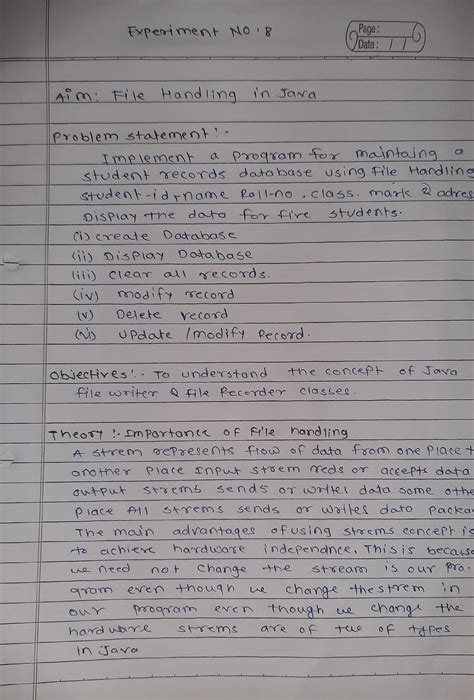 Experiment No. 8
Page:
Date: / /
Aim: File Handling in Java
Problem statement:-
Implement a program for maintaing a
student records database using File Handling
student-id, name Roll-no, class. mark & adres
Display the data for five students.
(i) create Database
(ii) Display Database
(iii) Clear all records.
(iv) modify record
(v) Delete record
(vi) update /modify Record.
Objectives:- To understand the concept of Java
file writer & file Recorder classes.
Theory:- Importance of file handling
A strem represents flow of data from one place t
another place Input strem reds or accepts data
output strems sends or writes data some othe
place All strems sends or writes data packa
The main advantages of using strems concept is
to achieve hardware independnce. This is because
we need not change the stream is our pro-
gram even though we change the strem in
our program even though we change the
hardware strems are of two of types
in Java